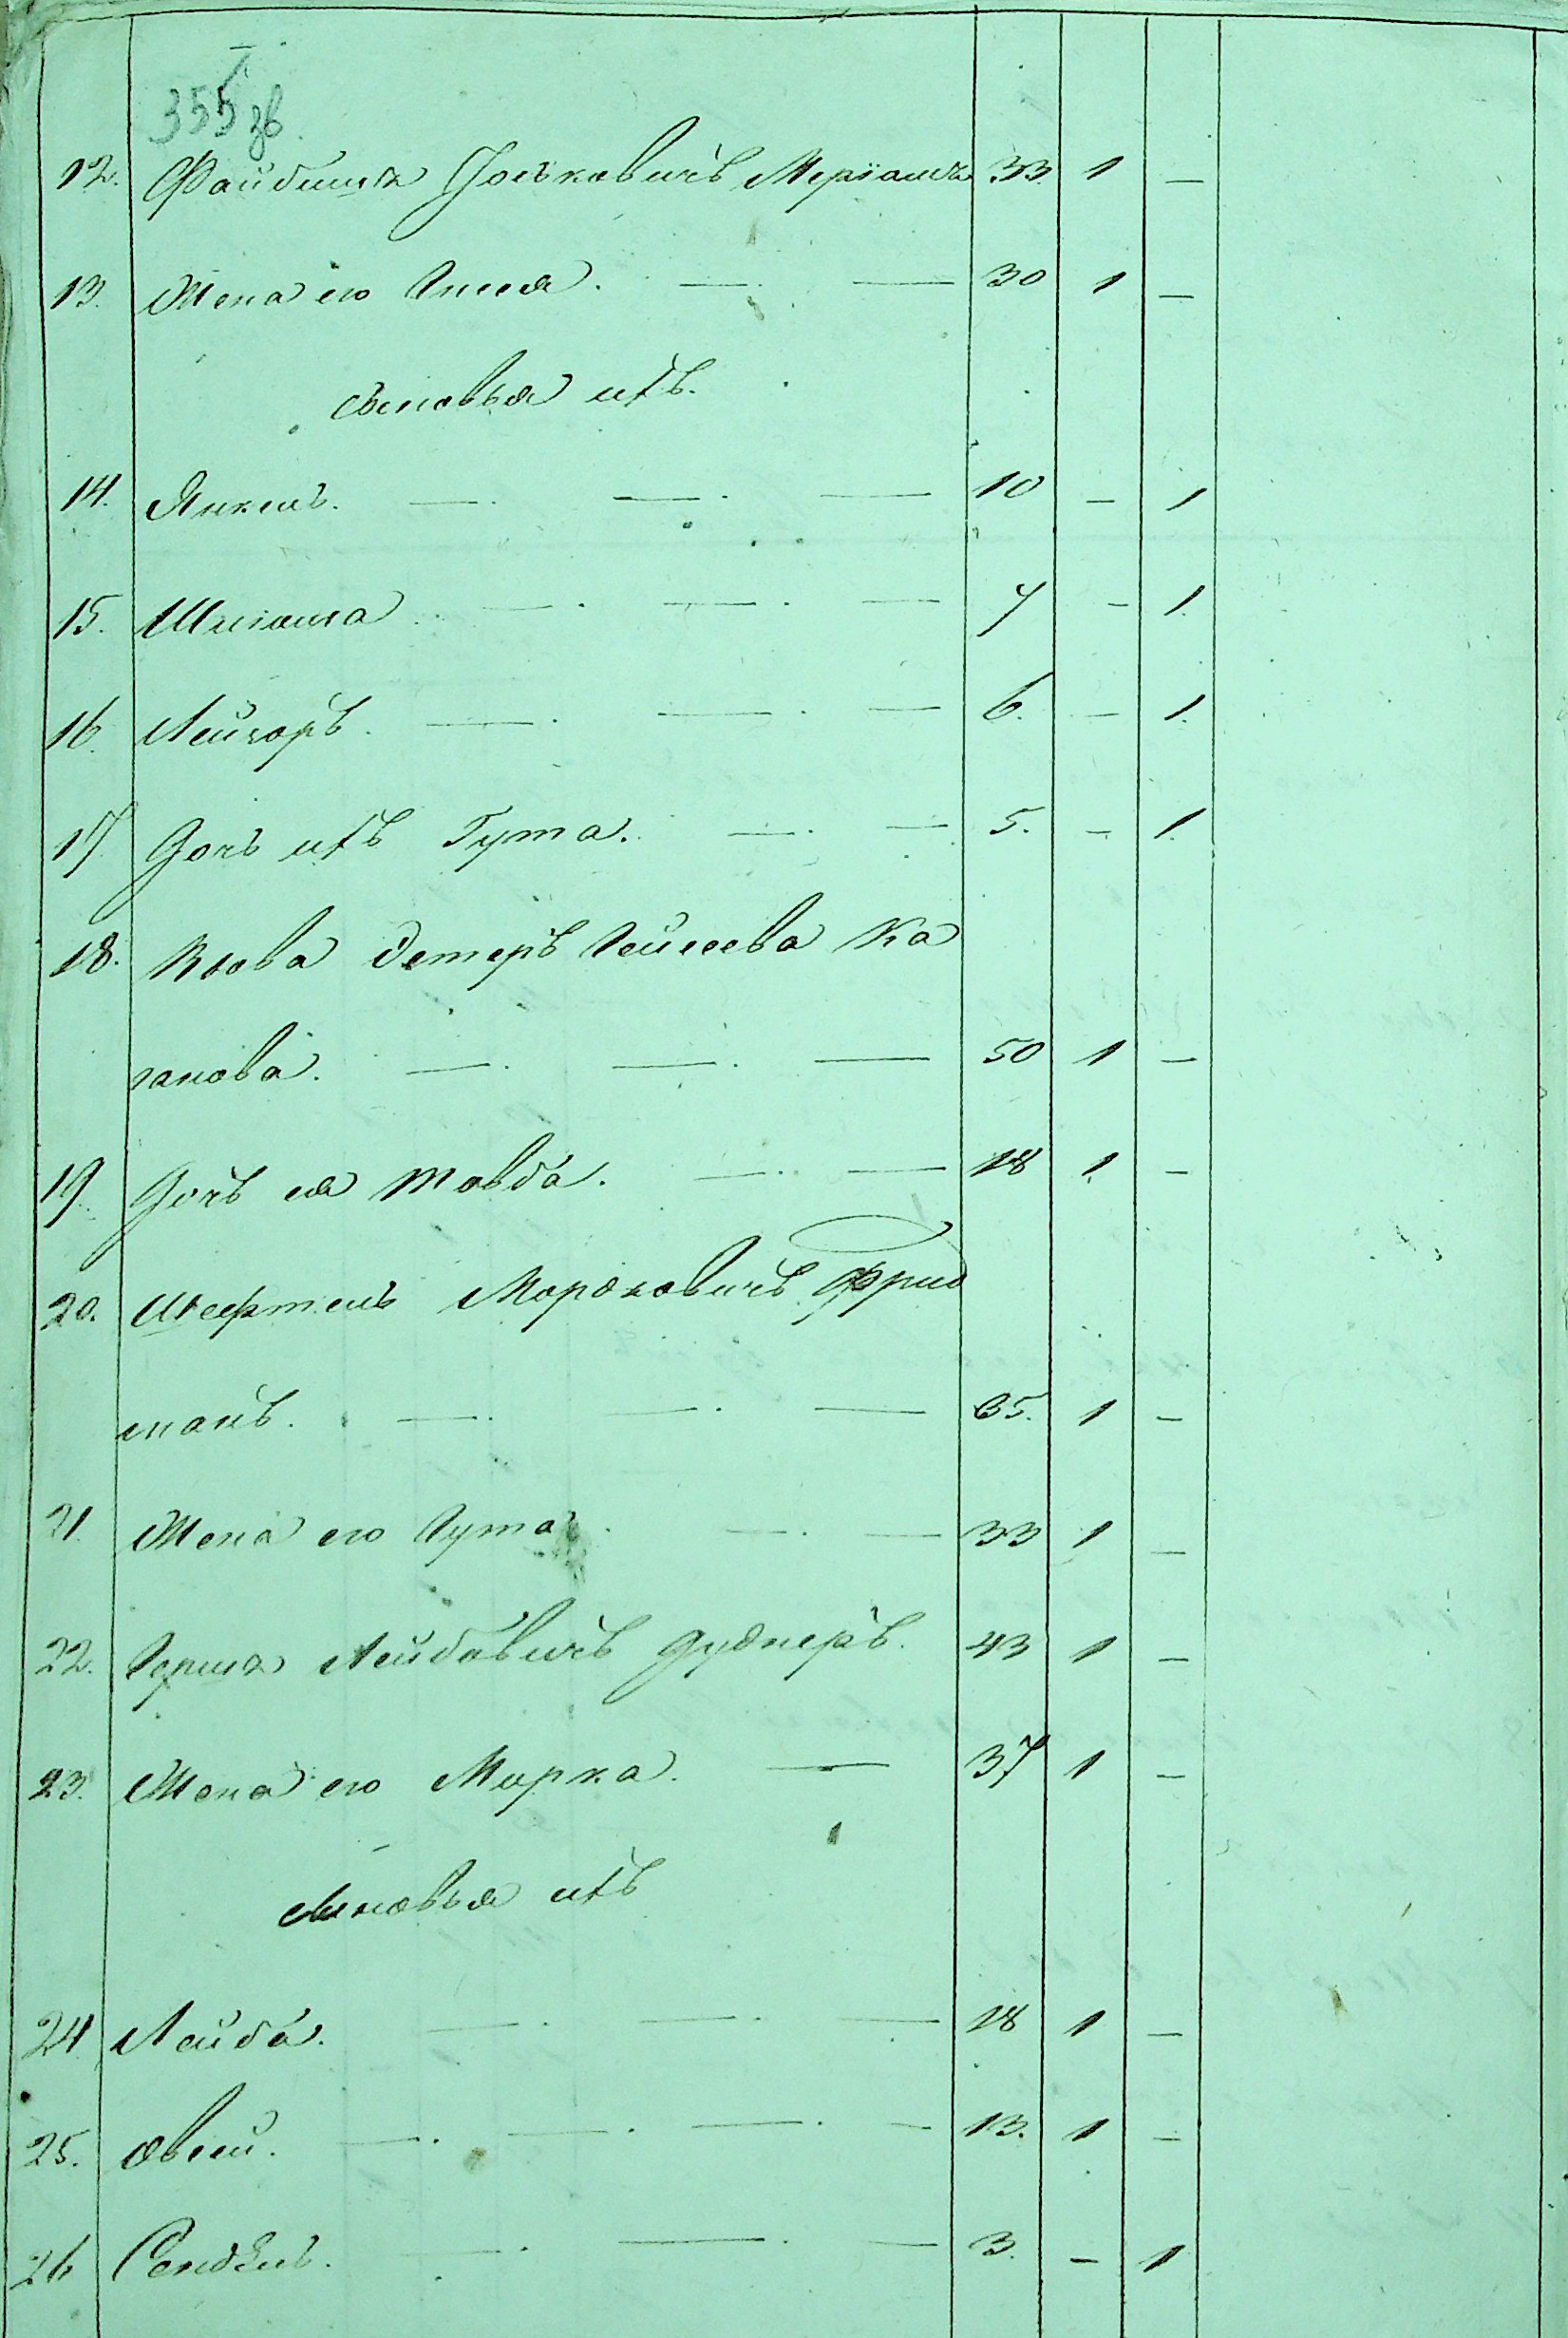 355 зв.
12. Файбишъ Іоськовичъ Меріамъ 33 1 —
13. Жена его Писся. — — 30 1 —
сыновья ихъ.
14. Янкель. — — — 10 — 1
15. Шлiома — — — 7 — 1.
16. Лейзоръ. — — — 6. — 1.
17 Дочь ихъ Гута. — — 5. — 1.
18. Вдова Эстеръ Лейзева Ка
ганова. — — — 50 1 —
19. Дочь ея Товба. — — 18 1 —
20. Шефтель Мордковичъ Фрид
манъ. — — — 35. 1 —
21. Жена его Гута. — — 33 1 —
22. Гершъ Лейбовичъ Дуднеръ. 43 1 —
23. Жена его Мирка. — 37 1 —
сыновья ихъ
24 Лейба. — — — 18 1 —
25. Овсей. — — — — 13. 1 —
26 Сендель. — — — 3. — 1